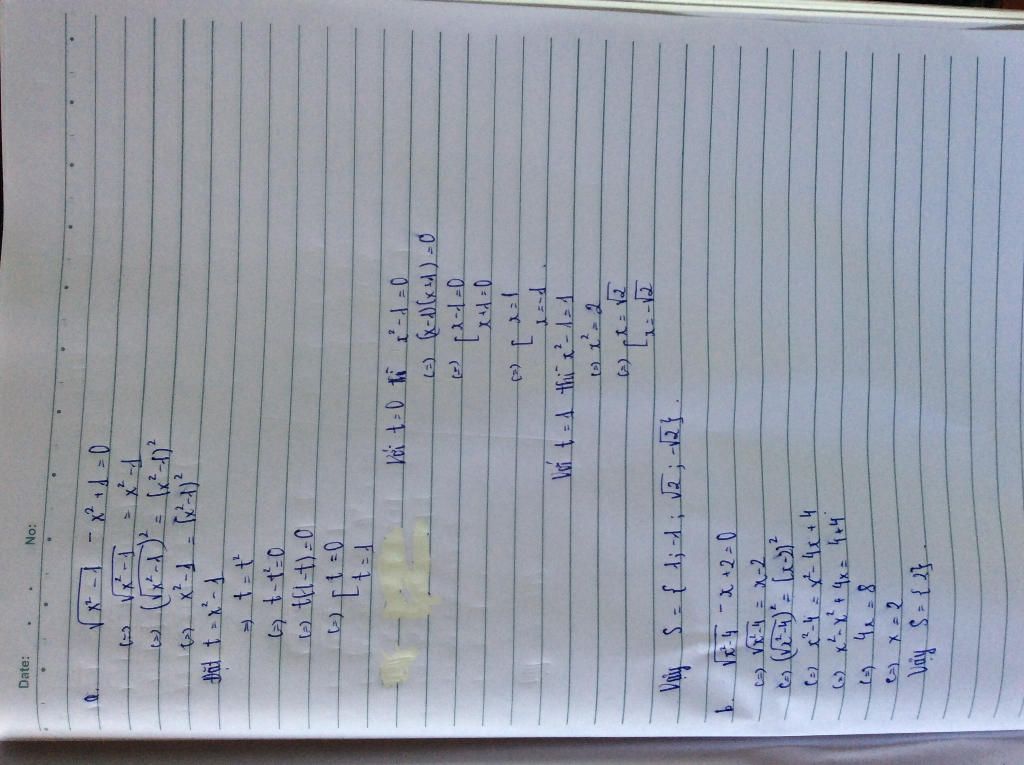 Date: No:
a. √(x²-1) - x² + 1 = 0
(=) √(x²-1) = x² - 1
(=) (√(x²-1))² = (x²-1)²
(=) x²-1 = (x²-1)²
Đặt t = x² - 1
=) t = t²
(=) t - t² = 0
(=) t(1-t) = 0
(=) [ t = 0
t = 1
Với t = 0 thì x² - 1 = 0
(=) (x-1)(x+1) = 0
(=) [ x-1=0
x+1=0
(=) [ x = 1
x = -1.
Với t = 1 thì x² - 1 = 1
(=) x² = 2
(=) [ x = √2
x = -√2
Vậy S = { 1; -1; √2; -√2}.
b. √(x²-4) - x + 2 = 0
(=) √(x²-4) = x - 2
(=) (√(x²-4))² = (x-2)²
(=) x² - 4 = x² - 4x + 4
(=) x² - x² + 4x = 4+4
(=) 4x = 8
(=) x = 2
Vậy S = {2}.